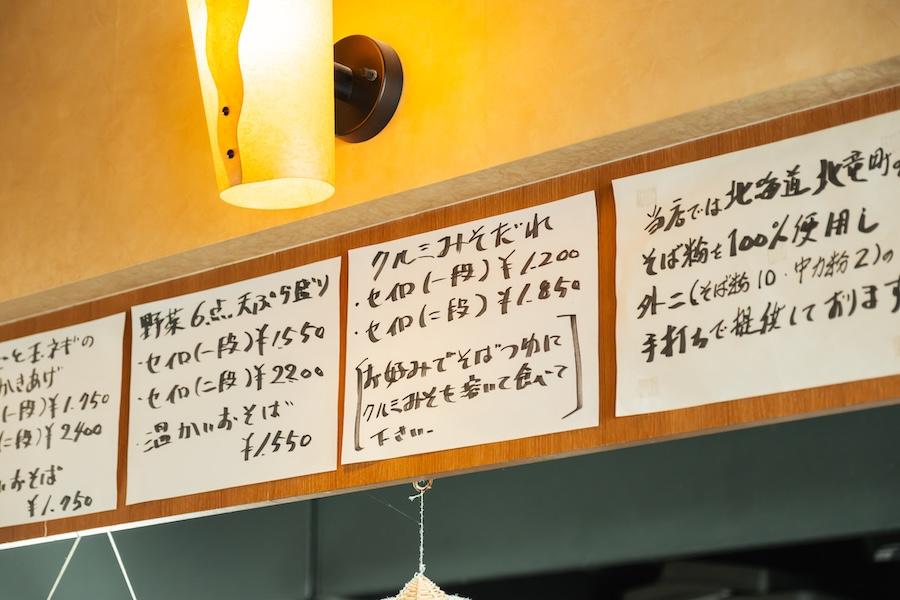 と玉ネギの
かきあげ
(一段)¥1.950
(二段)¥2400
いおそば
¥1.950
野菜6点天ぷら盛り
・セイロ(一段)¥1550
・セイロ(二段)¥2200
・温かいおそば
¥1.550
クルミみそだれ
・セイロ(一段)¥1.200
・セイロ(二段)¥1.850
[お好みでそばつゆに
クルミみそも溶いて食べて
下さい。]
当店では北海道北竜町の
そば粉を100%使用し
外二(そば粉10・中力粉2)の
手打ちで提供しております